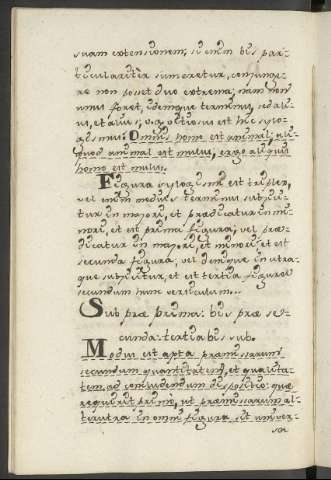 suam extensionem; si enim bis par-
ticularitèr sumeretur, conjunge-
re non posset duo extrema; nam non
unus foret, idemque terminus, sed ali-
us, et alius; vitiosus est hic syllo-
gismus: Omnis homo est animal; ali-
quod animal est mulus, ergo aliquis
homo est mulus.
Figura syllogismi est triplex,
vel enim medius terminus subjici-
tur in majori, et praedicatur in mi-
nori, et est prima figura; vel prae-
dicatur in majori, et minori, et est
secunda figura; vel denique in utra-
que subjicitur, et est tertia figura
secundum hunc versiculum...
Sub prae prima: bis prae se-
cunda: tertia bis sub.
Modus est apta praemissarum
secundum quantitatem, et qualita-
tem ad concludendum dispositio: quae
requirit primò, ut praemissarum al-
terutra in omni figura sit univer-
sa